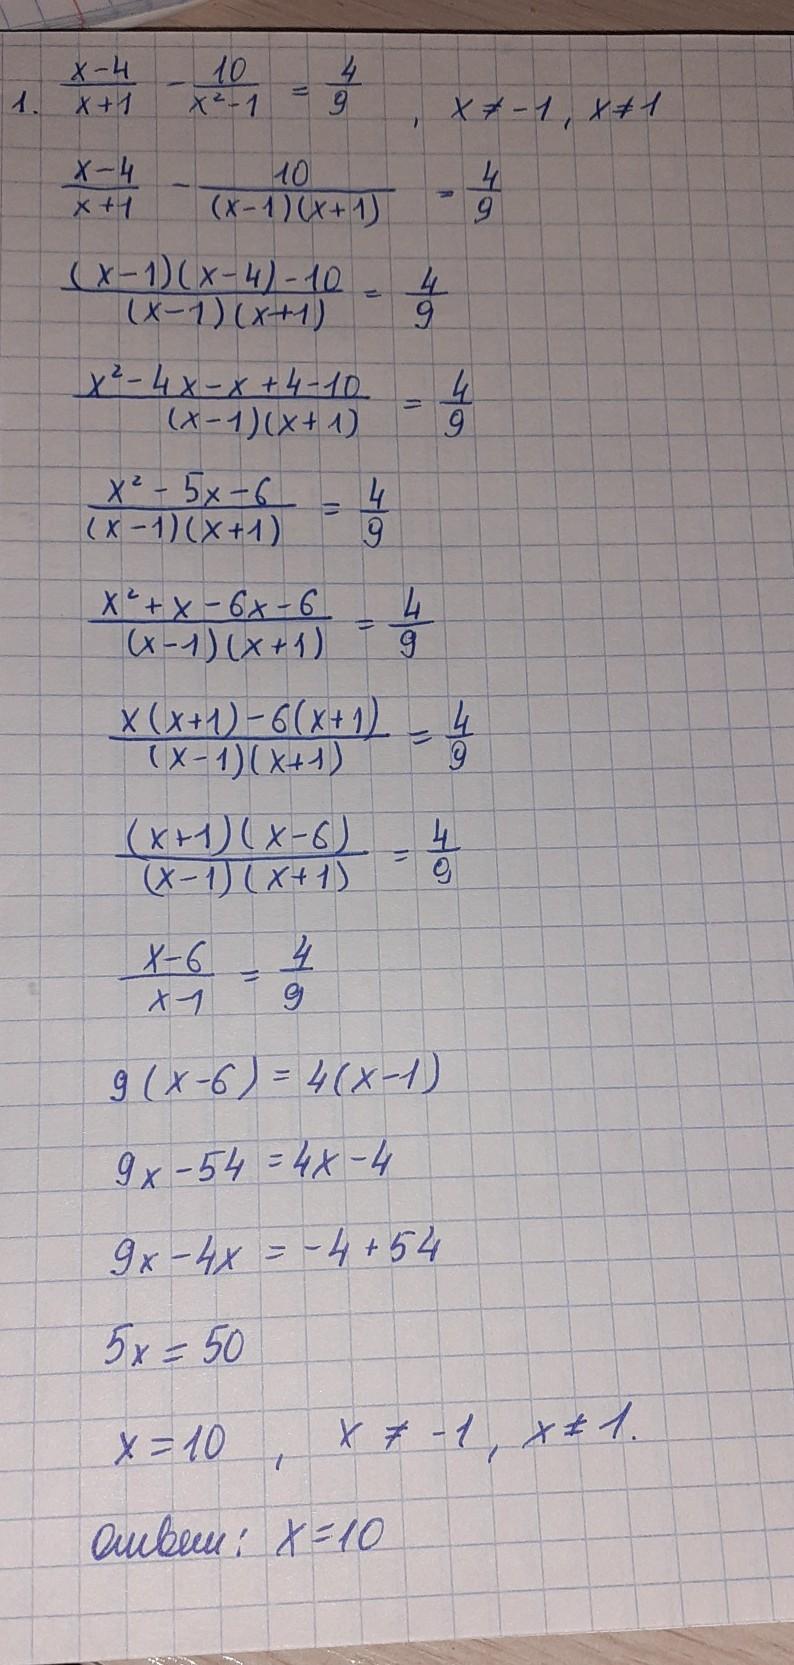 1. (x-4)/(x+1) - 10/(x²-1) = 4/9 , x≠-1, x≠1
(x-4)/(x+1) - 10/((x-1)(x+1)) = 4/9
((x-1)(x-4)-10)/((x-1)(x+1)) = 4/9
(x²-4x-x+4-10)/((x-1)(x+1)) = 4/9
(x²-5x-6)/((x-1)(x+1)) = 4/9
(x²+x-6x-6)/((x-1)(x+1)) = 4/9
(x(x+1)-6(x+1))/((x-1)(x+1)) = 4/9
((x+1)(x-6))/((x-1)(x+1)) = 4/9
(x-6)/(x-1) = 4/9
9(x-6)=4(x-1)
9x-54=4x-4
9x-4x=-4+54
5x=50
x=10 , x≠-1, x≠1.
ответ: x=10